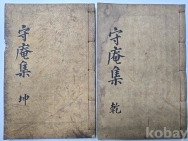 守庵集 乾
守庵集 坤
kobay